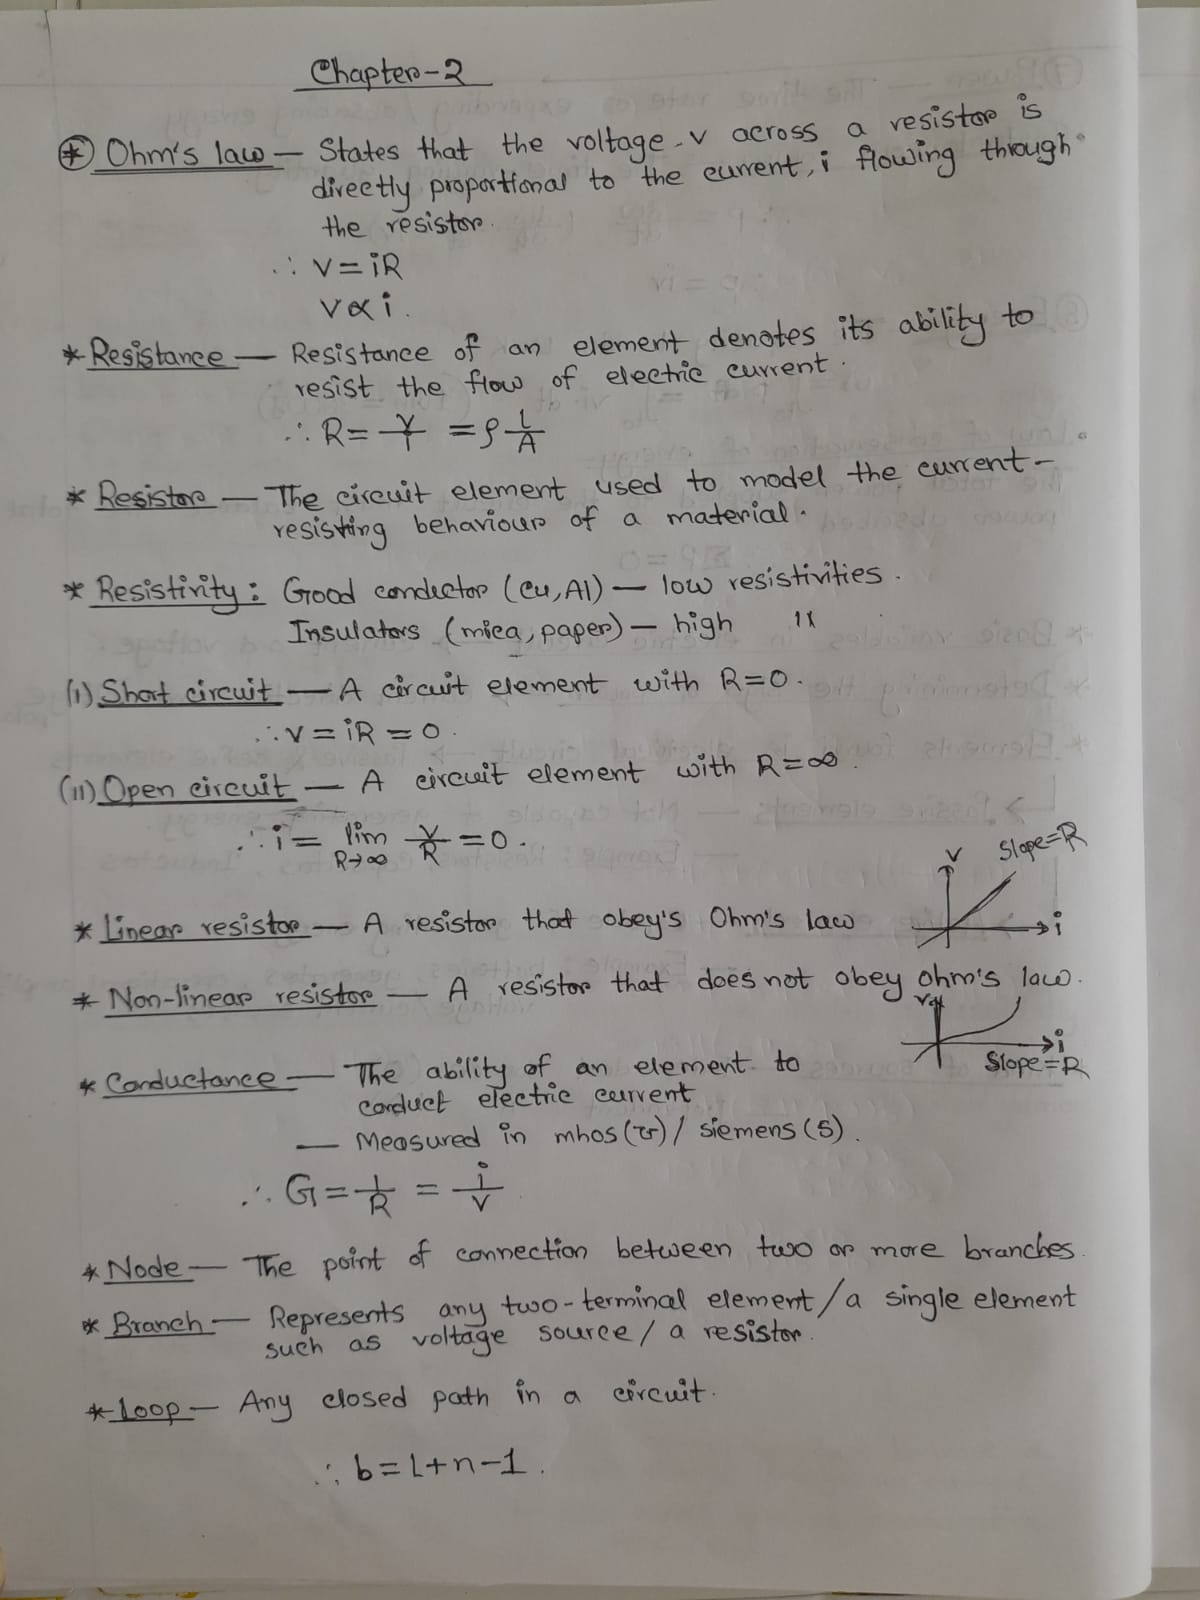 Chapter-2
* Ohm's law — States that the voltage, v across a resistor is
directly proportional to the current, i flowing through
the resistor.
∴ v = iR
v ∝ i.
* Resistance — Resistance of an element denotes its ability to
resist the flow of electric current.
∴ R = V/I = ρ l/A
* Resistor — The circuit element used to model the current-
resisting behaviour of a material.
* Resistivity: Good conductor (Cu, Al) — low resistivities.
Insulators (mica, paper) — high "
(i) Short circuit — A circuit element with R=0.
∴ v = iR = 0.
(ii) Open circuit — A circuit element with R=∞.
∴ i = lim R→∞ V/R = 0.
v Slope=R
i
* Linear resistor — A resistor that obey's Ohm's law
* Non-linear resistor — A resistor that does not obey ohm's law.
v
i
Slope=R
* Conductance — The ability of an element to
conduct electric current
— Measured in mhos (℧) / siemens (S).
∴ G = 1/R = i/v
* Node — The point of connection between two or more branches.
* Branch — Represents any two-terminal element / a single element
such as voltage source / a resistor.
* Loop — Any closed path in a circuit.
∴ b = l+n-1.